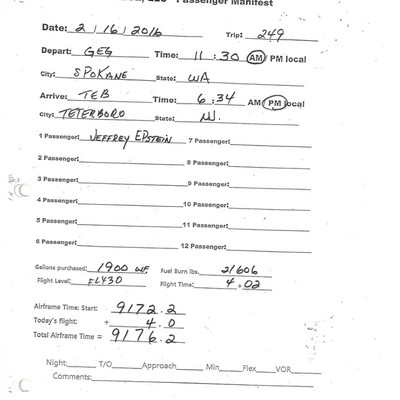 LLC Passenger Manifest
Date: 2/16/2016 Trip: 249
Depart: GEG Time: 11:30 AM PM local
City: SPOKANE State: WA
Arrive: TEB Time: 6:34 AM PM local
City: TETERBORO State: NJ.
1 Passenger: JEFFREY EPSTEIN 7 Passenger:
2 Passenger: 8 Passenger:
3 Passenger: 9 Passenger:
4 Passenger: 10 Passenger:
5 Passenger: 11 Passenger:
6 Passenger: 12 Passenger:
Gallons purchased: 1900 WF Fuel Burn lbs. 21606
Flight Level: FL430 Flight Time: 4+02
Airframe Time: Start: 9172.2
Today's flight: + 4.0
Total Airframe Time = 9176.2
Night: T/O Approach Min Flex VOR
Comments: